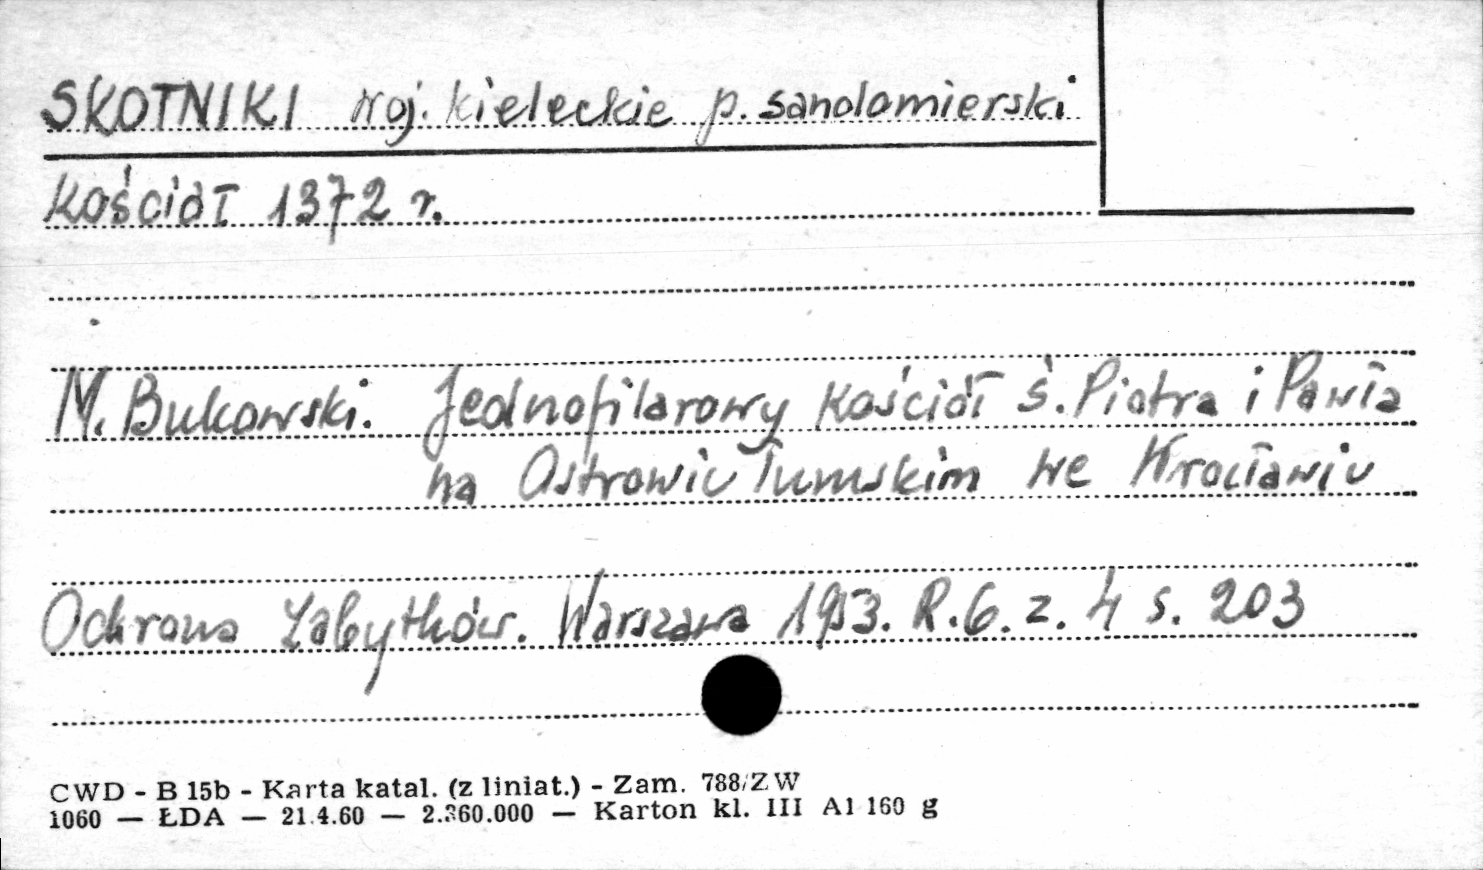 SKOTNIKI woj. kieleckie p. sandomierski
Kościół 1372 r.
M. Bukowski. Jednofilarowy kościół ś. Piotra i Pawła
na Ostrowiu Tumskim we Wrocławiu
Ochrona Zabytków. Warszawa 1953. R.6. z. 4 s. 203
CWD - B 15b - Karta katal. (z liniat.) - Zam. 788/ZW
1060 — ŁDA — 21.4.60 — 2.360.000 — Karton kl. III A1 160 g